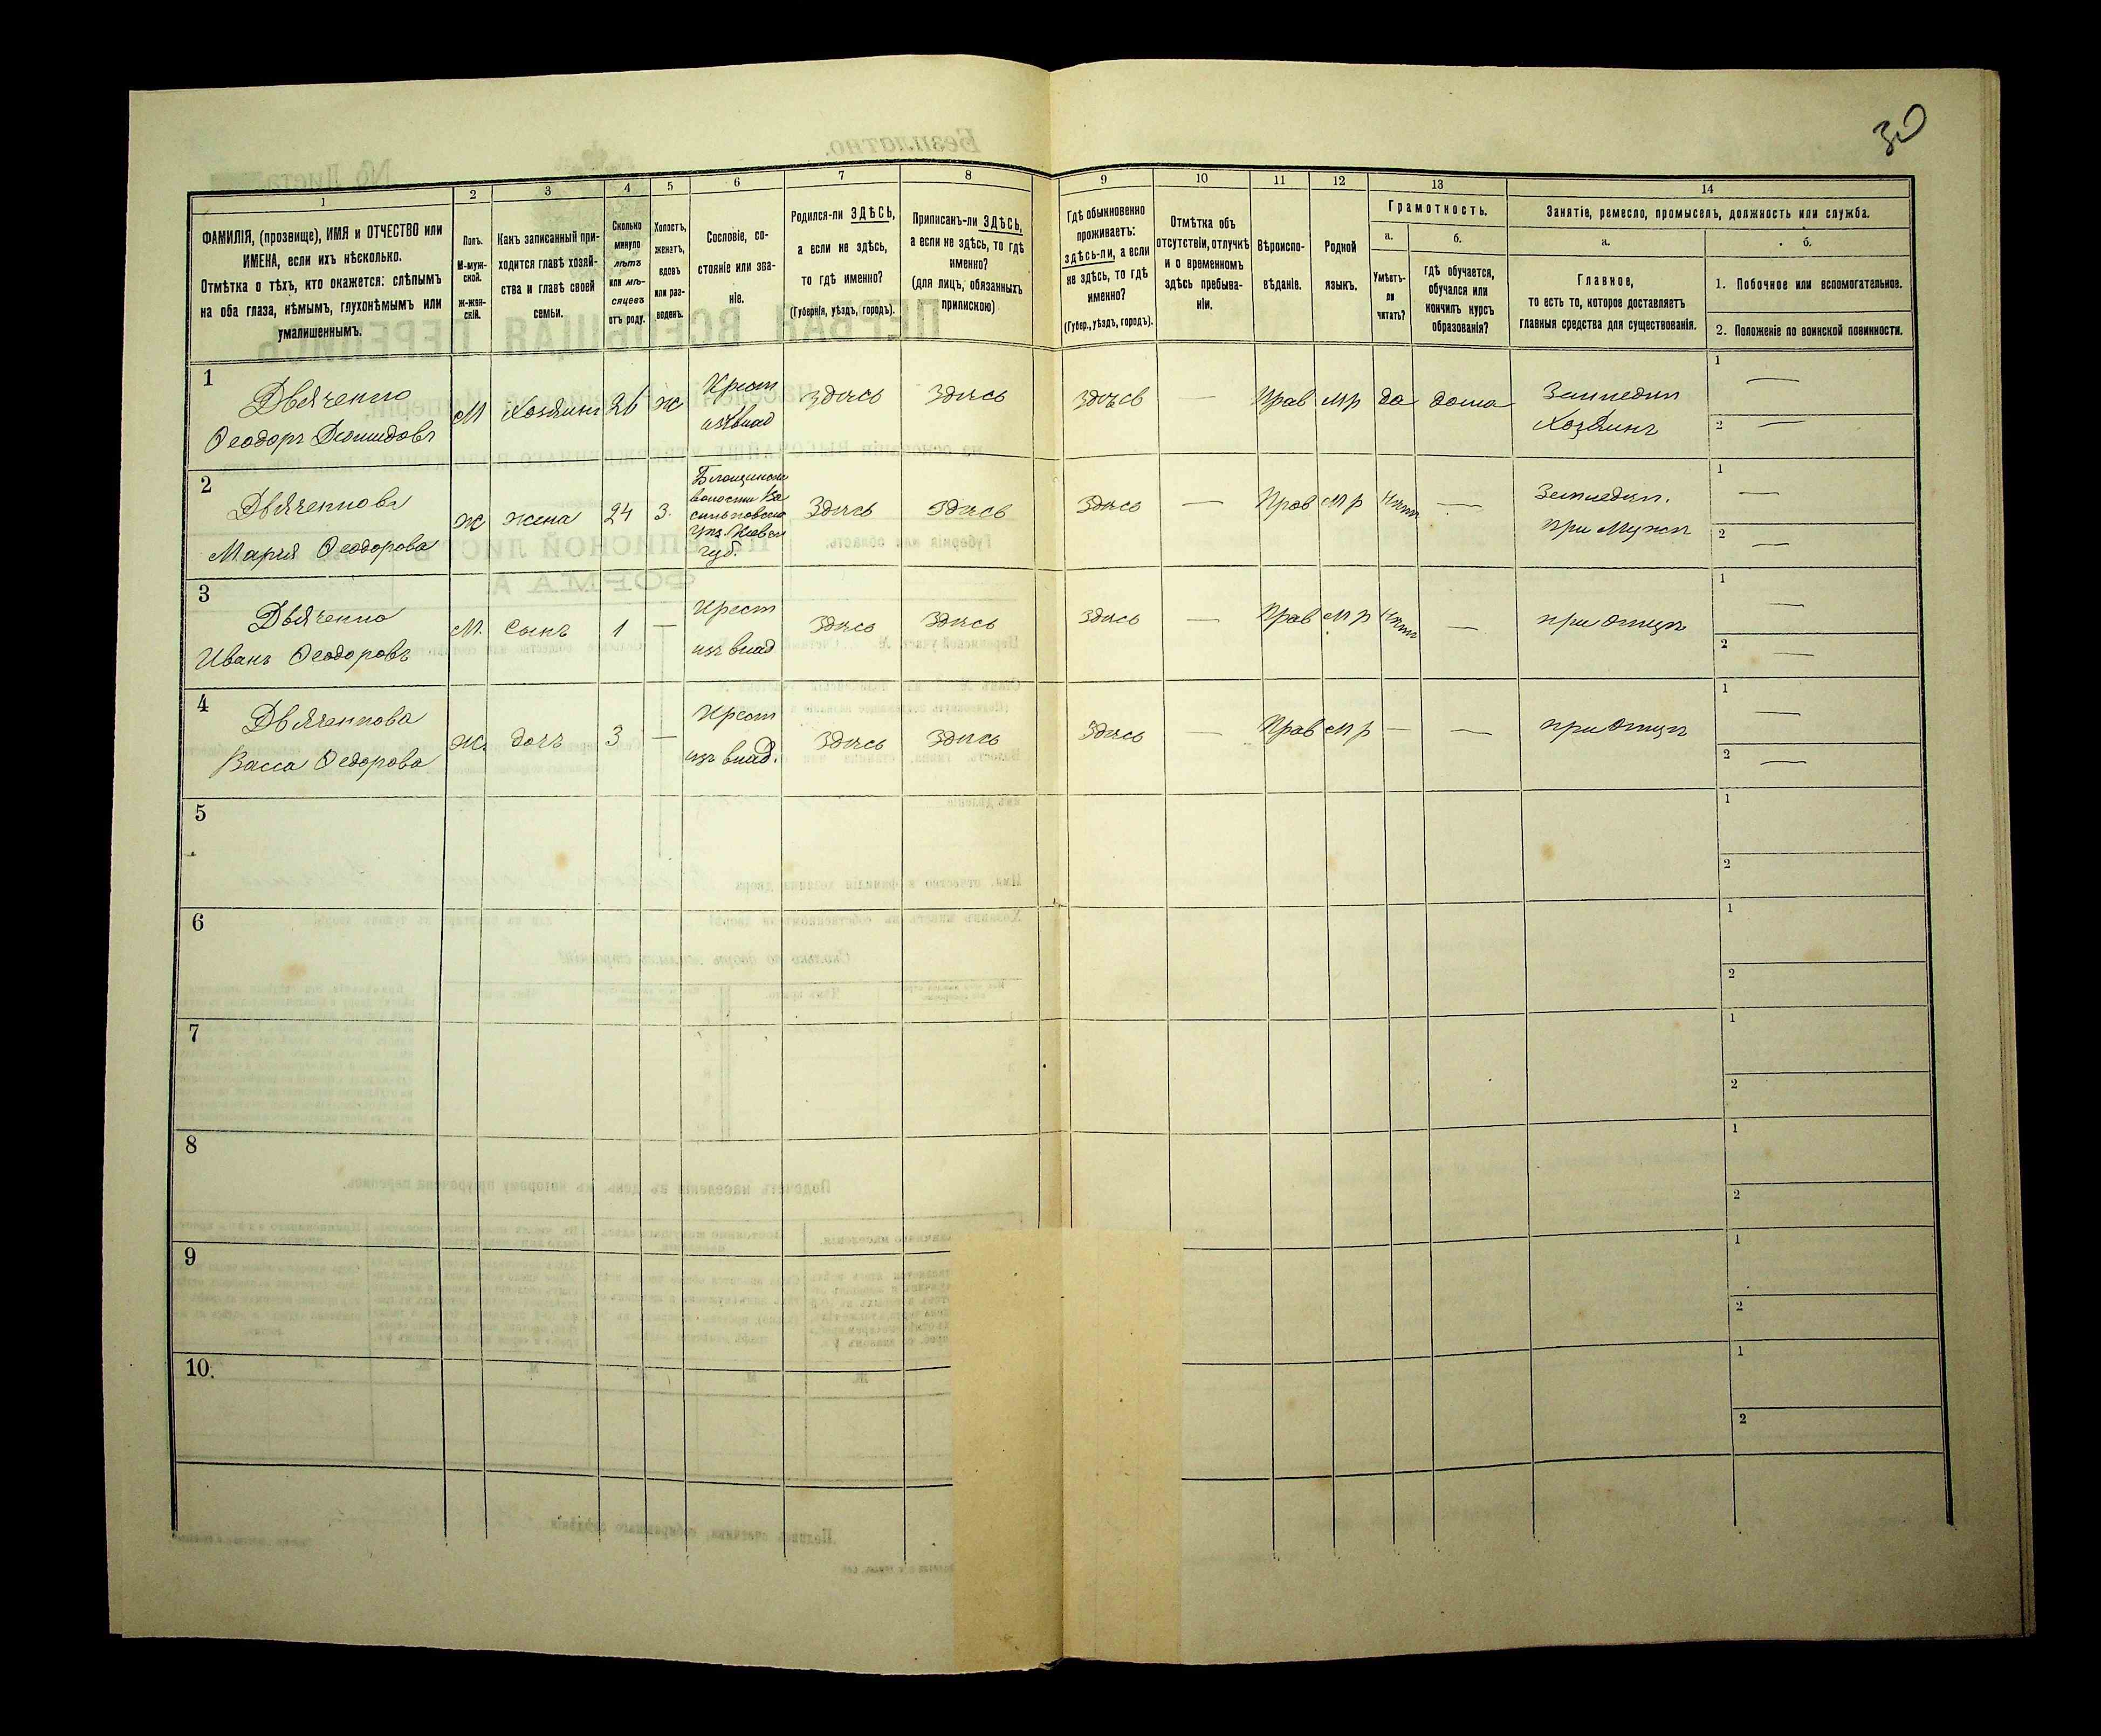 30
1
2
3
4
5
6
7
8
9
10
11
12
13
14
ФАМИЛІЯ, (прозвище), ИМЯ и ОТЧЕСТВО или
ИМЕНА, если ихъ нѣсколько.
Отмѣтка о тѣхъ, кто окажется: слѣпымъ
на оба глаза, нѣмымъ, глухонѣмымъ или
умалишеннымъ.
Полъ.
М-муж-
ской.
Ж-жен-
скій.
Какъ записанный при-
ходится главѣ хозяй-
ства и главѣ своей
семьи.
Сколько
минуло
лѣтъ
или мѣ-
сяцевъ
отъ роду.
Холостъ,
женатъ,
вдовъ
или раз-
веденъ.
Сословіе, со-
стояніе или зва-
ніе.
Родился-ли ЗДѢСЬ,
а если не здѣсь,
то гдѣ именно?
(Губернія, уѣздъ, городъ).
Приписанъ-ли ЗДѢСЬ,
а если не здѣсь, то гдѣ
именно?
(для лицъ, обязанныхъ
припискою)
Гдѣ обыкновенно
проживаетъ:
здѣсь-ли, а если
не здѣсь, то гдѣ
именно?
(Губер., уѣздъ, городъ).
Отмѣтка объ
отсутствіи, отлучкѣ
и о временномъ
здѣсь пребыва-
ніи.
Вѣроиспо-
вѣданіе.
Родной
языкъ.
Грамотность.
а.
Умѣетъ-
ли
читать?
б.
гдѣ обучается,
обучался или
кончилъ курсъ
образованія?
Занятіе, ремесло, промыселъ, должность или служба.
а.
Главное,
то есть то, которое доставляетъ
главныя средства для существованія.
б.
1. Побочное или вспомогательное.
2. Положеніе по воинской повинности.
1
Дьяченко
Ѳеодоръ Демидовъ
М Хозяинъ 26 Ж
Крест
изъ влад
здѣсь здѣсь здѣсь — Прав мр да дома
Земледѣл
Хозяинъ
1 —
2 —
2
Дьяченкова
Марья Ѳеодорова
Ж жена 24 З.
волости Ва
сильковска
уѣз. Киевск
губ.
Здѣсь здѣсь здѣсь — Прав мр Нѣтъ —
Земледѣл.
при мужѣ
1 —
2 —
3
Дьяченко
Иванъ Ѳеодоровъ
М. Сынъ 1 —
Крест
изъ влад
здѣсь здѣсь здѣсь — Прав мр Нѣтъ —
при отцѣ
1 —
2 —
4
Дьяченкова
Васса Ѳедорова
Ж. дочь 3 —
Крест
изъ влад.
здѣсь здѣсь здѣсь — Прав мр — —
при отцѣ
1 —
2 —
5
1
2
6
1
2
7
1
2
8
1
2
9
1
2
10.
1
2